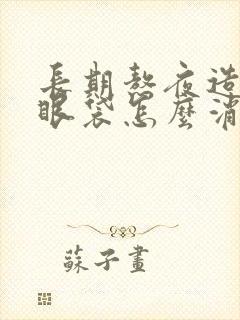 長期熬夜造
眼袋怎麼消
蘇子畫